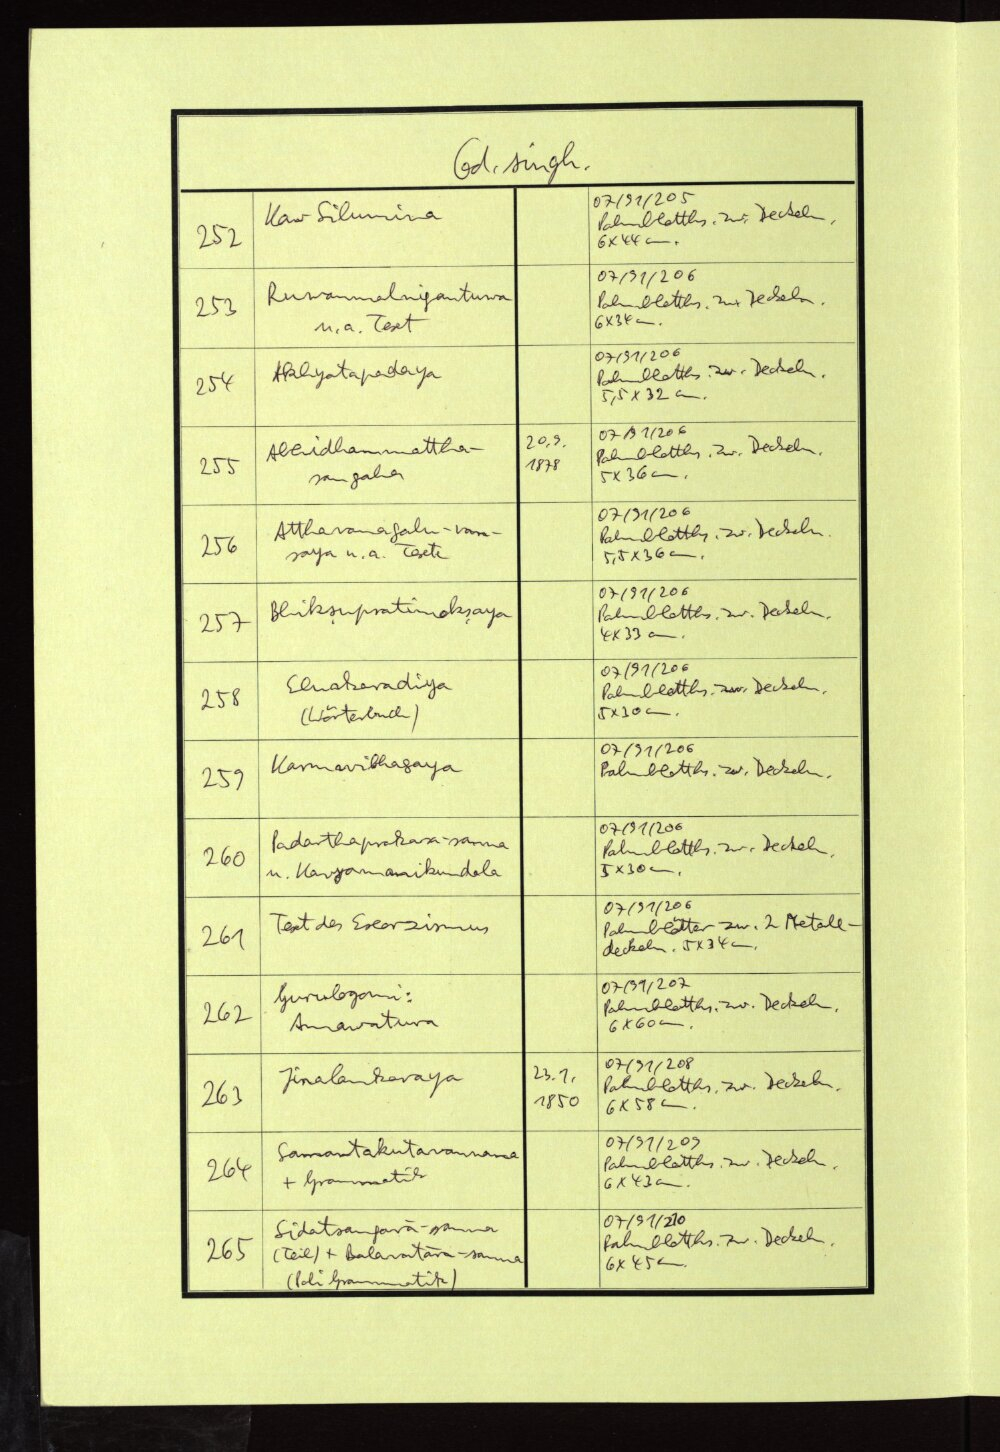 Cod. singh.
252
Kav Silumina
07/91/205
Palmblatths. zw. Deckeln.
6x44 cm.
253
Ruwanmalnigantuwa
u. a. Text
07/91/206
Palmblatths. zw. Deckeln.
6x34 cm.
254
Akhyatapadaya
07/91/206
Palmblatths. zw. Deckeln.
5,5 x 32 cm.
255
Abhidhammattha-
sangaha
20.9.
1878
07/91/206
Palmblatths. zw. Deckeln.
5x36 cm.
256
Atthavanagalu-vam-
saya u. a. Texte
07/91/206
Palmblatths. zw. Deckeln.
5,5x36 cm.
257
Bhikṣupratimokṣaya
07/91/206
Palmblatths. zw. Deckeln.
4x33 cm.
258
Eluakaradiya
(Wörterbuch)
07/91/206
Palmblatths. zw. Deckeln.
5x30 cm.
259
Karmavibhagaya
07/91/206
Palmblatths. zw. Deckeln.
260
Padarthaprakara-sanna
u. Kavyamanikundala
07/91/206
Palmblatths. zw. Deckeln.
5x30 cm.
261
Text des Exorzismus
07/91/206
Palmblätter zw. 2 Metall-
deckeln. 5x34 cm.
262
Gurulogomi:
Amawatura
07/91/207
Palmblatths. zw. Deckeln.
6x60 cm.
263
Jinalankaraya
23.1.
1850
07/91/208
Palmblatths. zw. Deckeln.
6x58 cm.
264
Samantakutavannana
+ Grammatik
07/91/209
Palmblatths. zw. Deckeln.
6x43 cm.
265
Sidatsangarā-sanna
(Teil) + Balavatāra-sanna
(Pali Grammatik)
07/91/210
Palmblatths. zw. Deckeln.
6x45 cm.